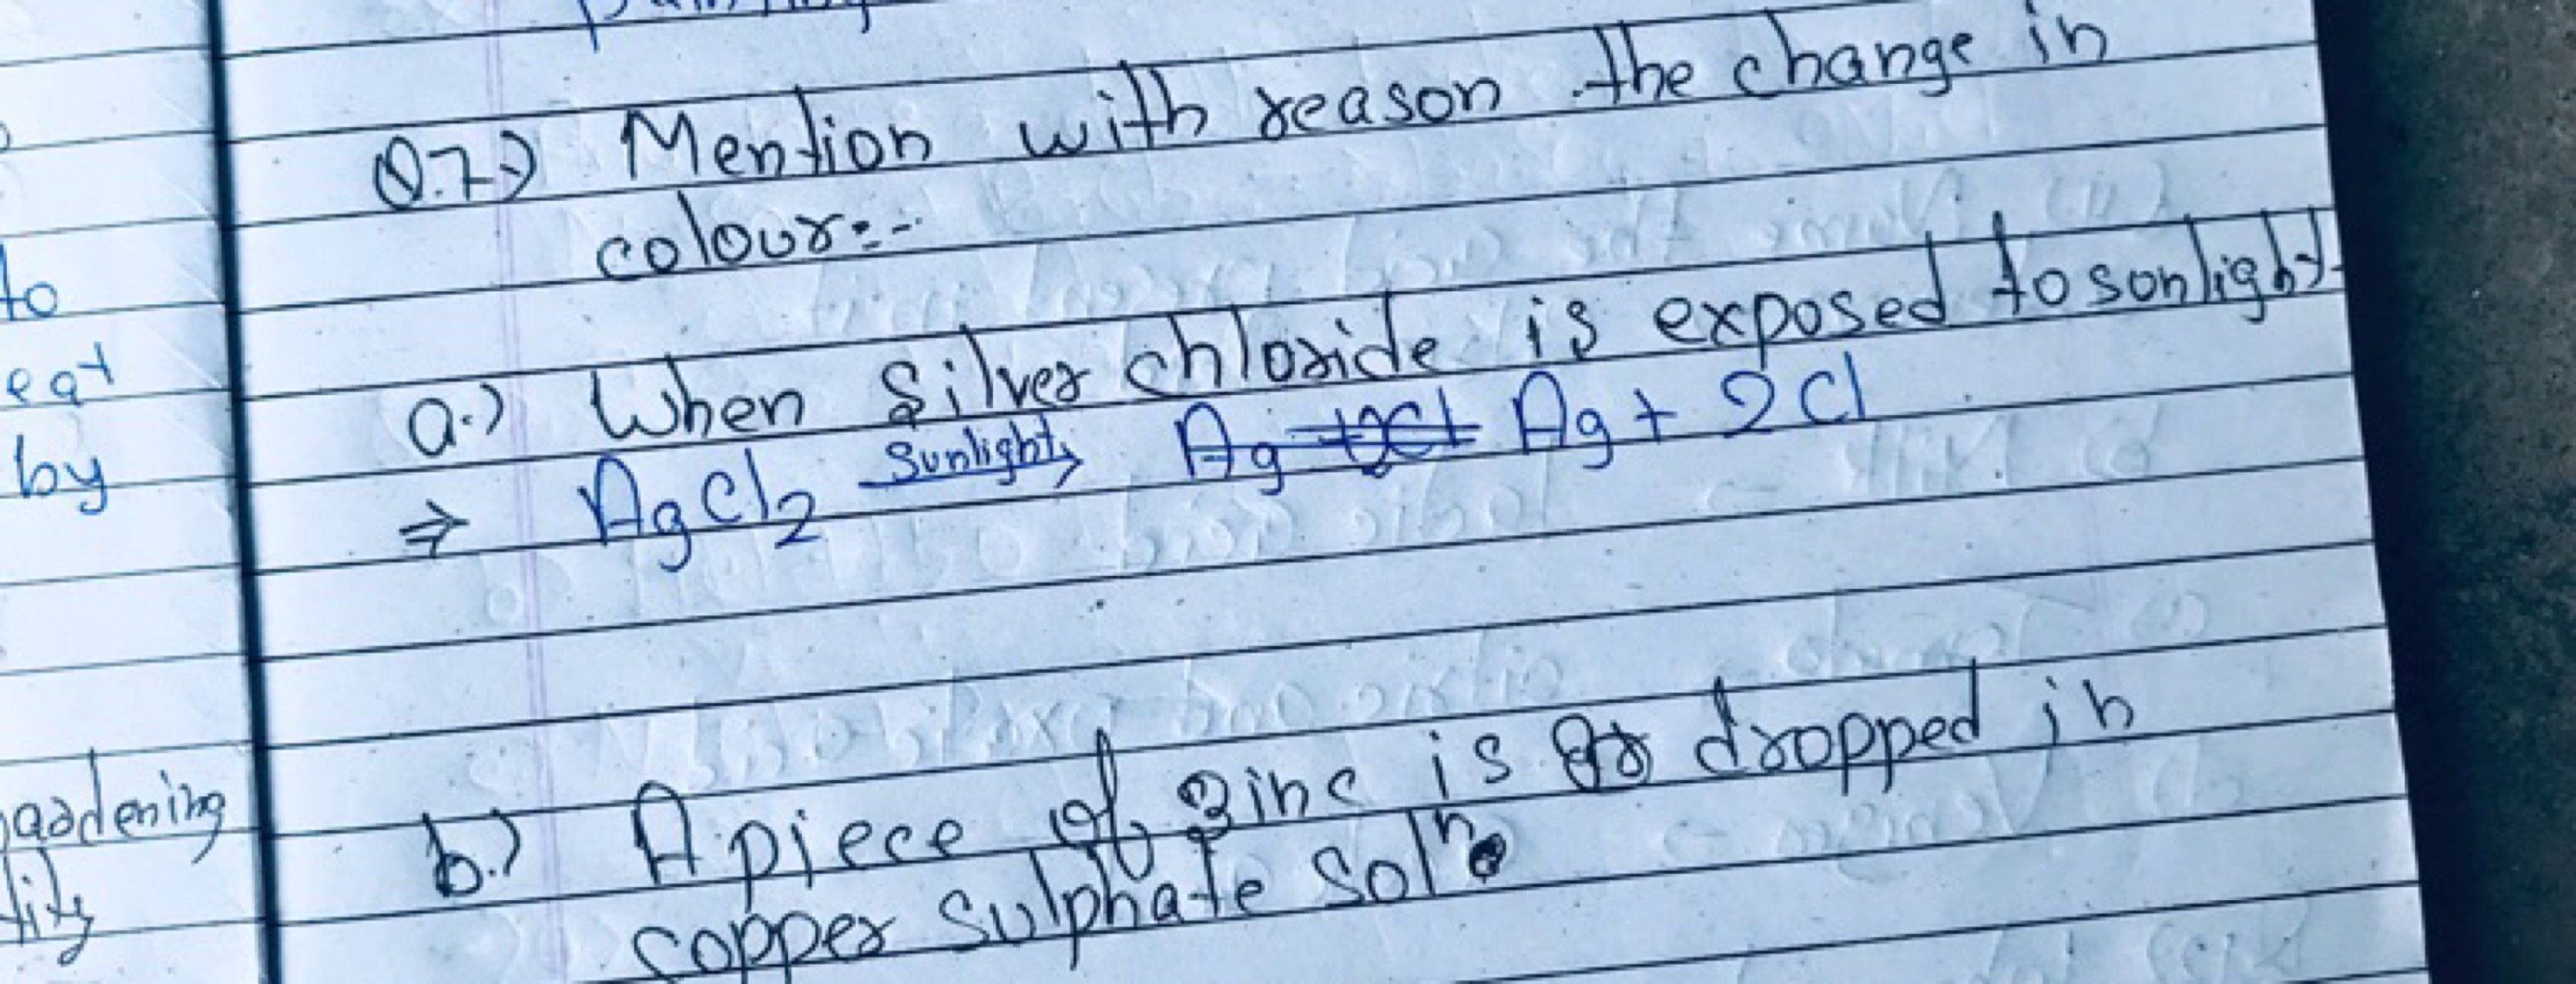 to
eat
by
gardening
Q.7) Mention with reason the change in
colour:-
a.) When Silver chloride is exposed to sonlight.
⇒ AgCl₂ Sunlight→ Ag + 2Cl
b.) A piece of zinc is dropped in
copper sulphate solⁿ.